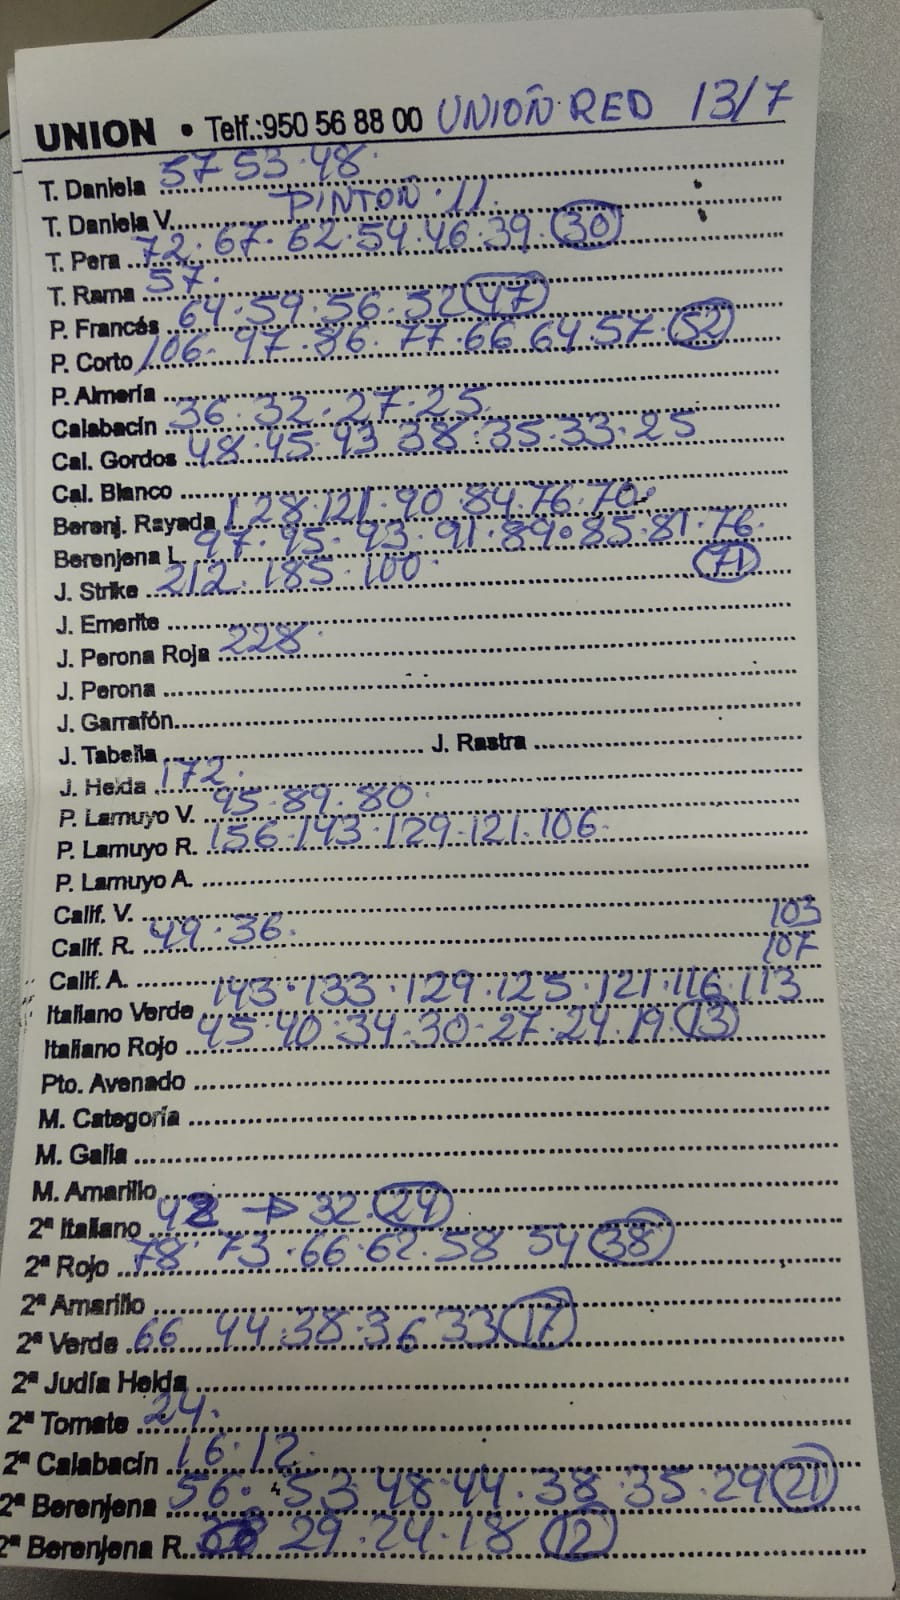 UNION • Telf.:950 56 88 00 UNION RED 13/7
T. Daniela 57 53·48·
T. Daniela V. PINTON·11.
T. Pera 72·67·62·54·46·39·30
T. Rama 57·
P. Francés 64·59·56·52 47
P. Corto 106·97·86·77·66 64·57·52
P. Almería
Calabacín 36·32·27·25·
Cal. Gordos 48·45·43 38·35·33·25
Cal. Blanco
Berenj. Rayada 128·121·90·84·76·70·
Berenjena L. 97·95·93·91·89·85·81·76·
71
J. Strike 212·185·100·
J. Emerite
J. Perona Roja 228·
J. Perona
J. Garrafón
J. Tabella J. Rastra
J. Helda 172·
P. Lamuyo V. 95·89·80·
P. Lamuyo R. 156·143·129·121·106·
P. Lamuyo A.
Calif. V. 103
Calif. R. 49·36· 107
Calif. A.
Italiano Verde 143·133·129·125·121·116·113
Italiano Rojo 45·40·34·30·27·24·19·13
Pto. Avenado
M. Categoría
M. Galia
M. Amarillo
2ª Italiano 32·24
2ª Rojo 78·73·66·62·58 54 38
2ª Amarillo
2ª Verde 66 44·38·36 33 17
2ª Judía Helda
2ª Tomate 24·
2ª Calabacín 16·12·
2ª Berenjena 56·53·48·44·38·35·29 21
2ª Berenjena R. 29·24·18 12